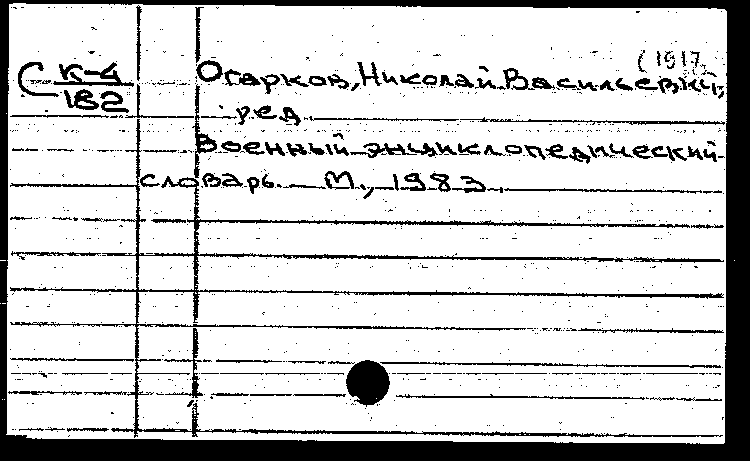 (1917
С К-4
182
Огарков, Николай Васильевич,
ред.
Военный энциклопедический
словарь. М., 1983.